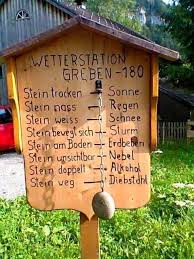 WETTERSTATION
GREBEN-180
Stein trocken Sonne
Stein nass Regen
Stein weiss Schnee
Stein bewegt sich Sturm
Stein am Boden Erdbeben
Stein unsichtbar Nebel
Stein doppelt Alkohol
Stein weg Diebstahl